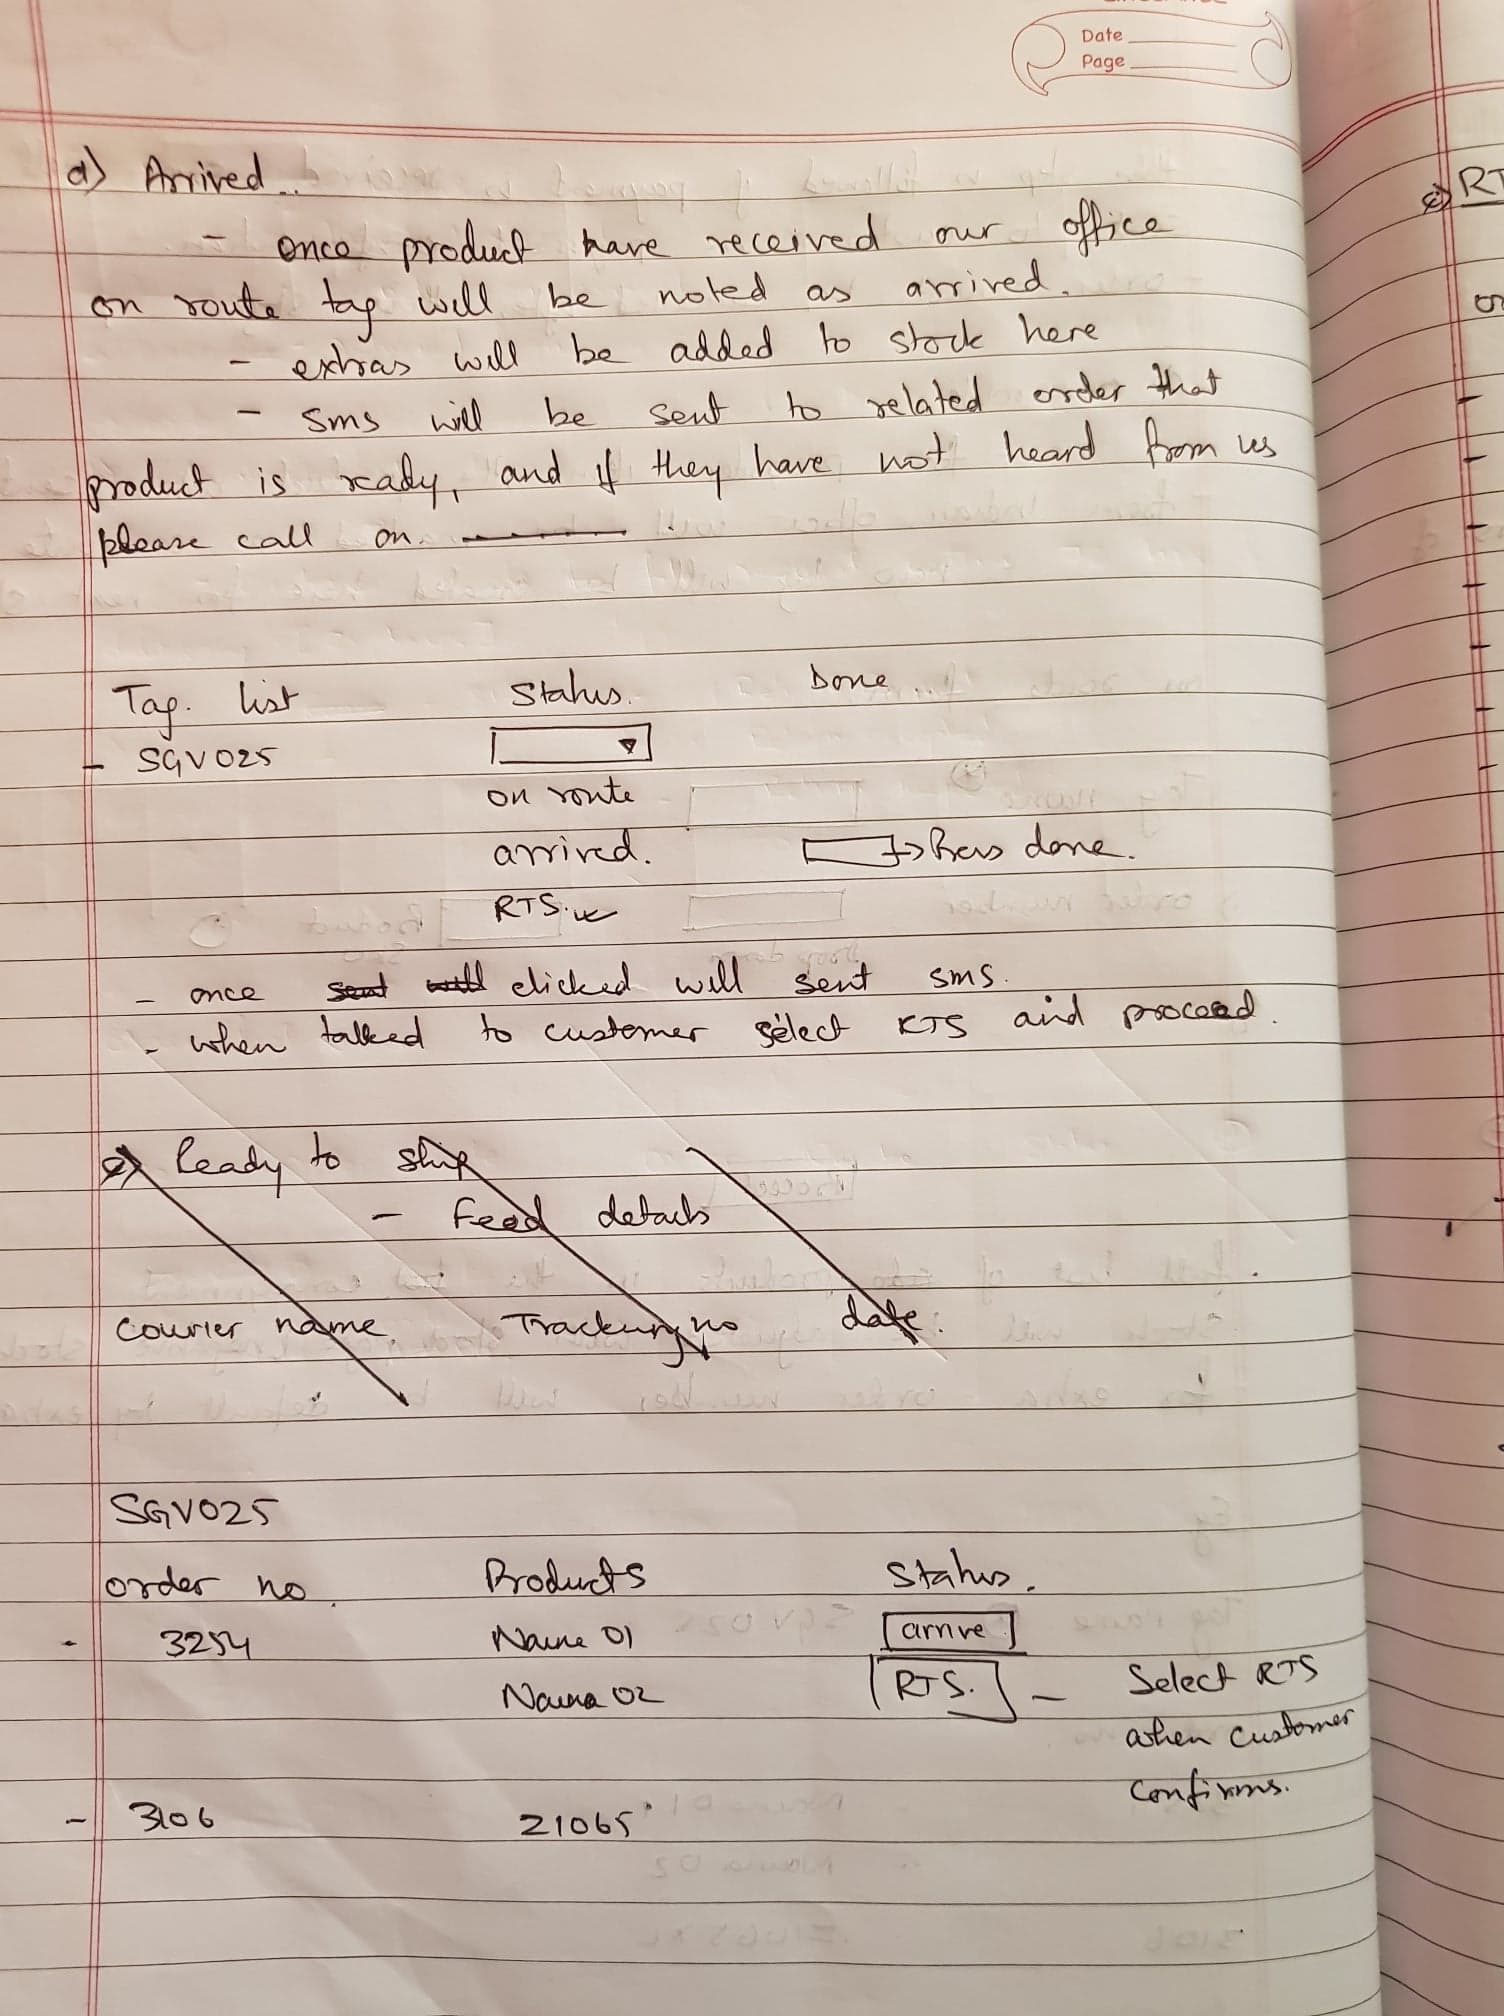 Date
Page
d) Arrived..
- once product have received our office
on route tag will be noted as arrived.
- extras will be added to stock here
- sms will be sent to related order that
product is ready, and if they have not heard from us
please call on.
Tag. list Status. Done
- SGV025
on route
arrived. Press done.
RTS.
- once sent will clicked will sent sms.
- when talked to customer select RTS and proceed.
e) Ready to ship
- Feed details
Courier name. Tracking no date.
SGV025
order no. Products Status.
- 3254 Naina 01 arrive
Naina 02 RTS. - Select RTS
when customer
confirms.
- 3106 21065
RT
or